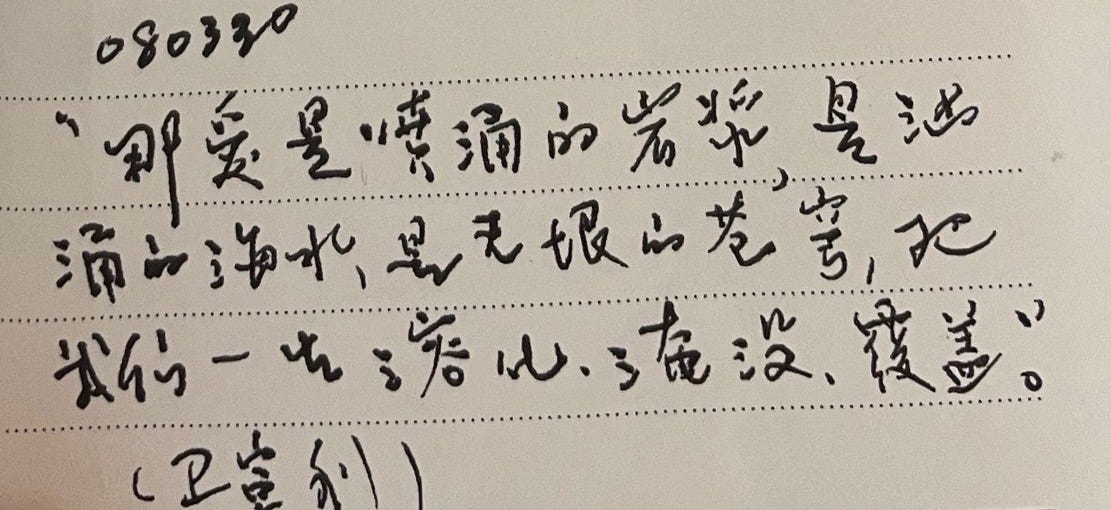 080330
“那爱是喷涌的岩浆,是汹
涌的海水,是无垠的苍穹,把
我们一生溶化、淹没、覆盖。”
(卫宣利)